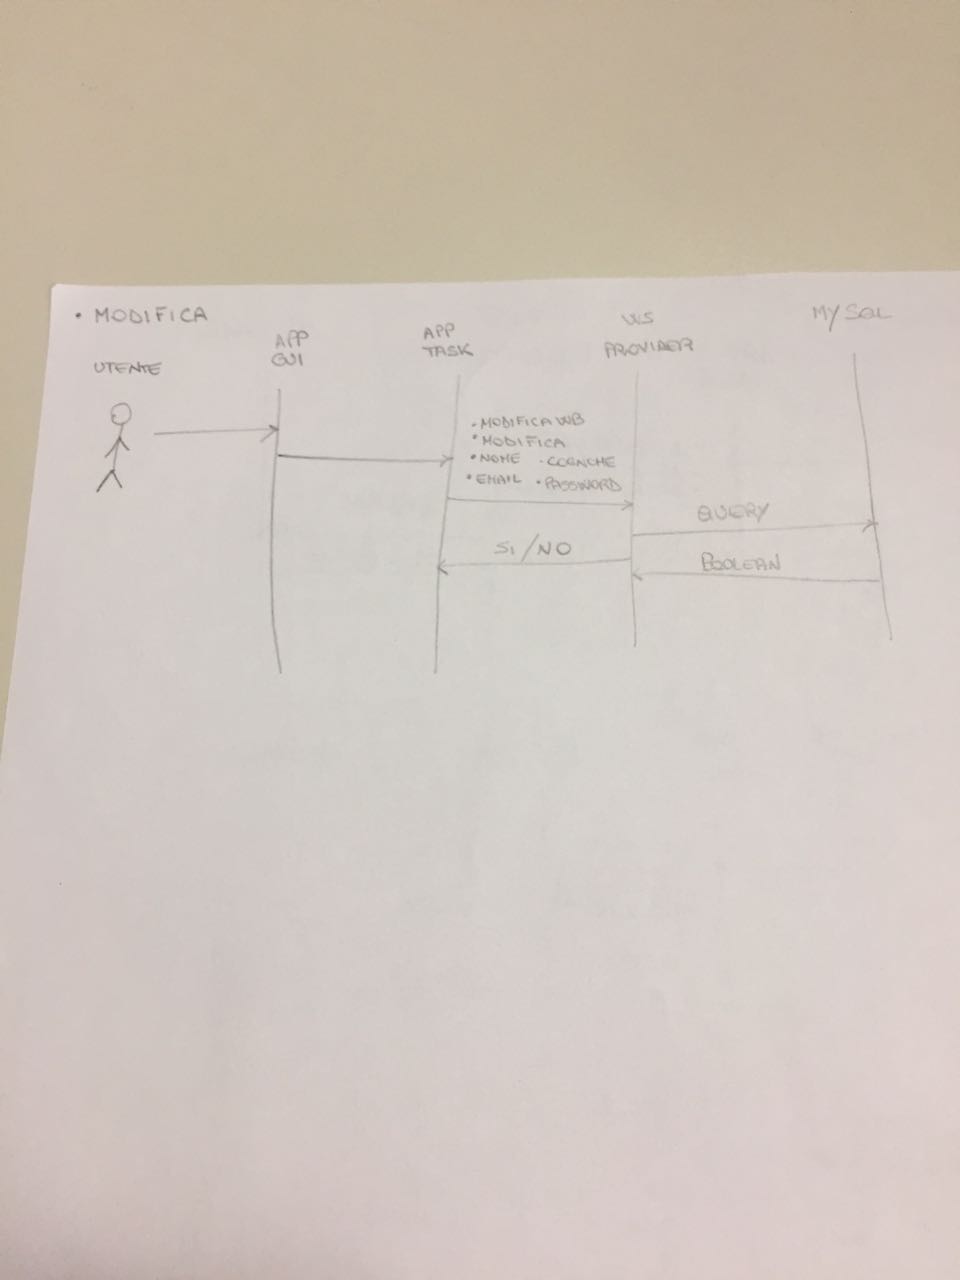 • MODIFICA
UTENTE
APP
GUI
APP
TASK
WS
PROVIDER
MY SQL
• MODIFICA WB
• MODIFICA
• NOME • COGNOME
• EMAIL • PASSWORD
QUERY
SI/NO
BOOLEAN